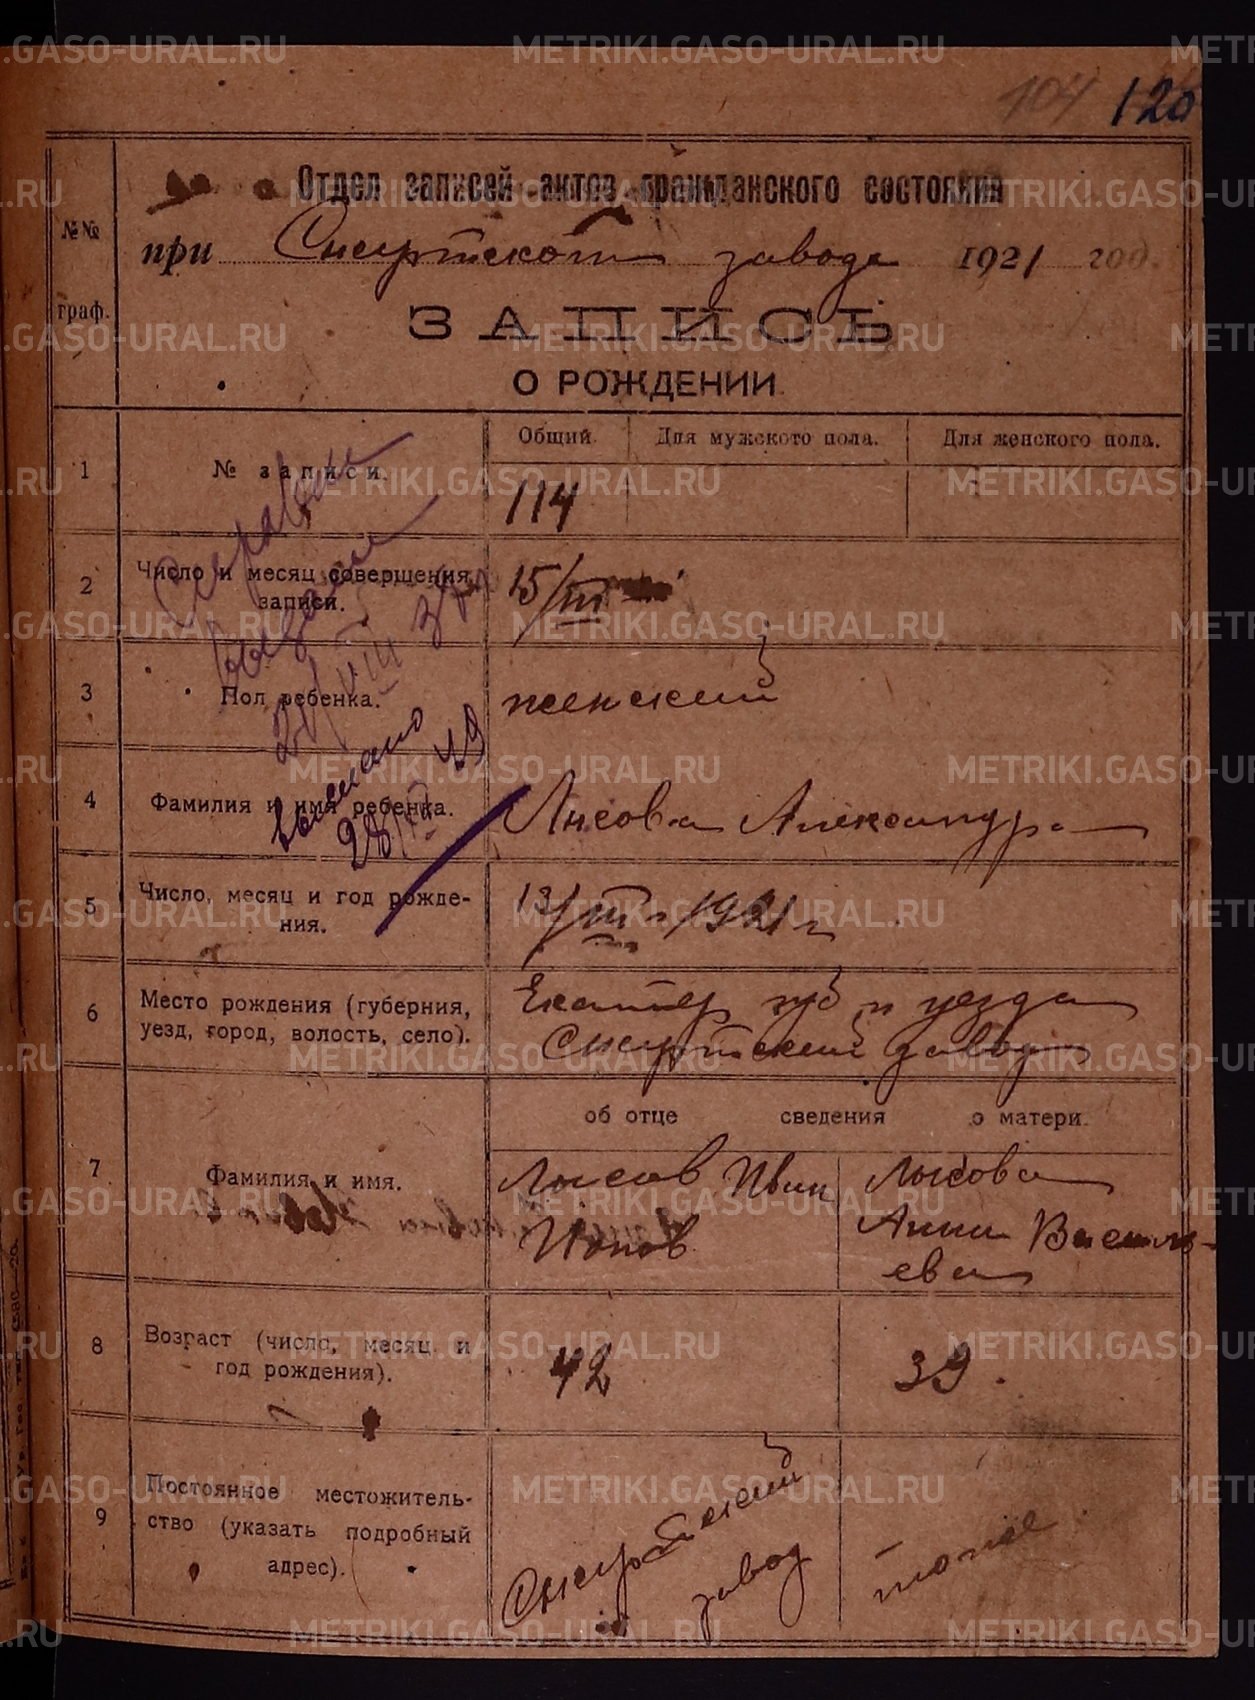 120
Отдел записей актов гражданского состояния
№№ граф.
при Сысертском заводе 1921 год.
ЗАПИСЬ
О РОЖДЕНИИ.
Общий. Для мужского пола. Для женского пола.
1 № записи. 114
2 Число и месяц совершения записи. 15/III
Справка
выдана
3 Пол ребенка. женский
выписано
4 Фамилия и имя ребенка. Лысова Александра
5 Число, месяц и год рожде-
ния. 13/III 1921 г
6 Место рождения (губерния, Екатер губ и уезда
уезд, город, волость, село). Сысертский завод
об отце сведения о матери.
7 Фамилия и имя. Лысов Иван Лысова
Ионов Анна Василь-
ева
8 Возраст (число, месяц и
год рождения). 42 39
9 Постоянное местожитель-
ство (указать подробный
адрес).
Сысертский
завод
тоже
METRIKI.GASO-URAL.RU